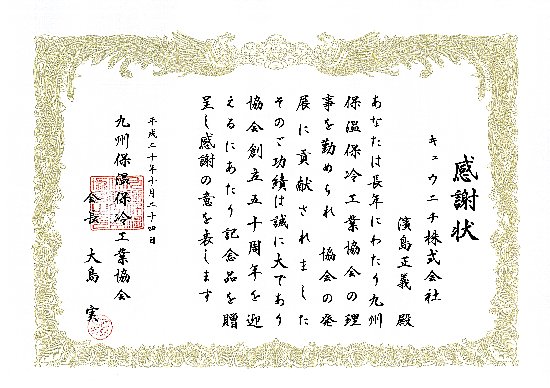 感謝状
キュウニチ株式会社
濱島正義 殿
あなたは長年にわたり九州
保温保冷工業協会の理
事を勤められ 協会の発
展に貢献されました
そのご功績は誠に大であり
協会創立五十周年を迎
えるにあたり記念品を贈
呈し感謝の意を表します
平成二十年十月二十四日
九州保温保冷工業協会
会長 大島 実